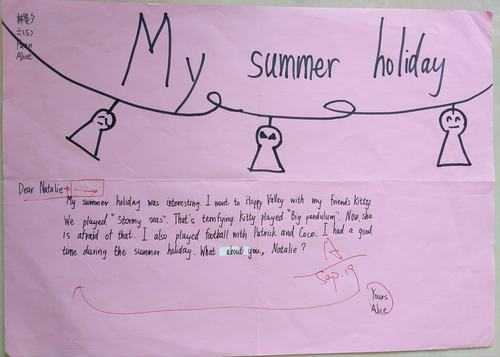 Alice
My summer holiday
Dear Natalie
My summer holiday was interesting. I went to Happy Valley with my friends Kitty.
We played "Stormy seas". That's terrifying. Kitty played "Big pendulum". Now, she
is afraid of that. I also played football with Patrick and Coco. I had a good
time during the summer holiday. What about you, Natalie?
A
Sep. 19
Yours
Alice